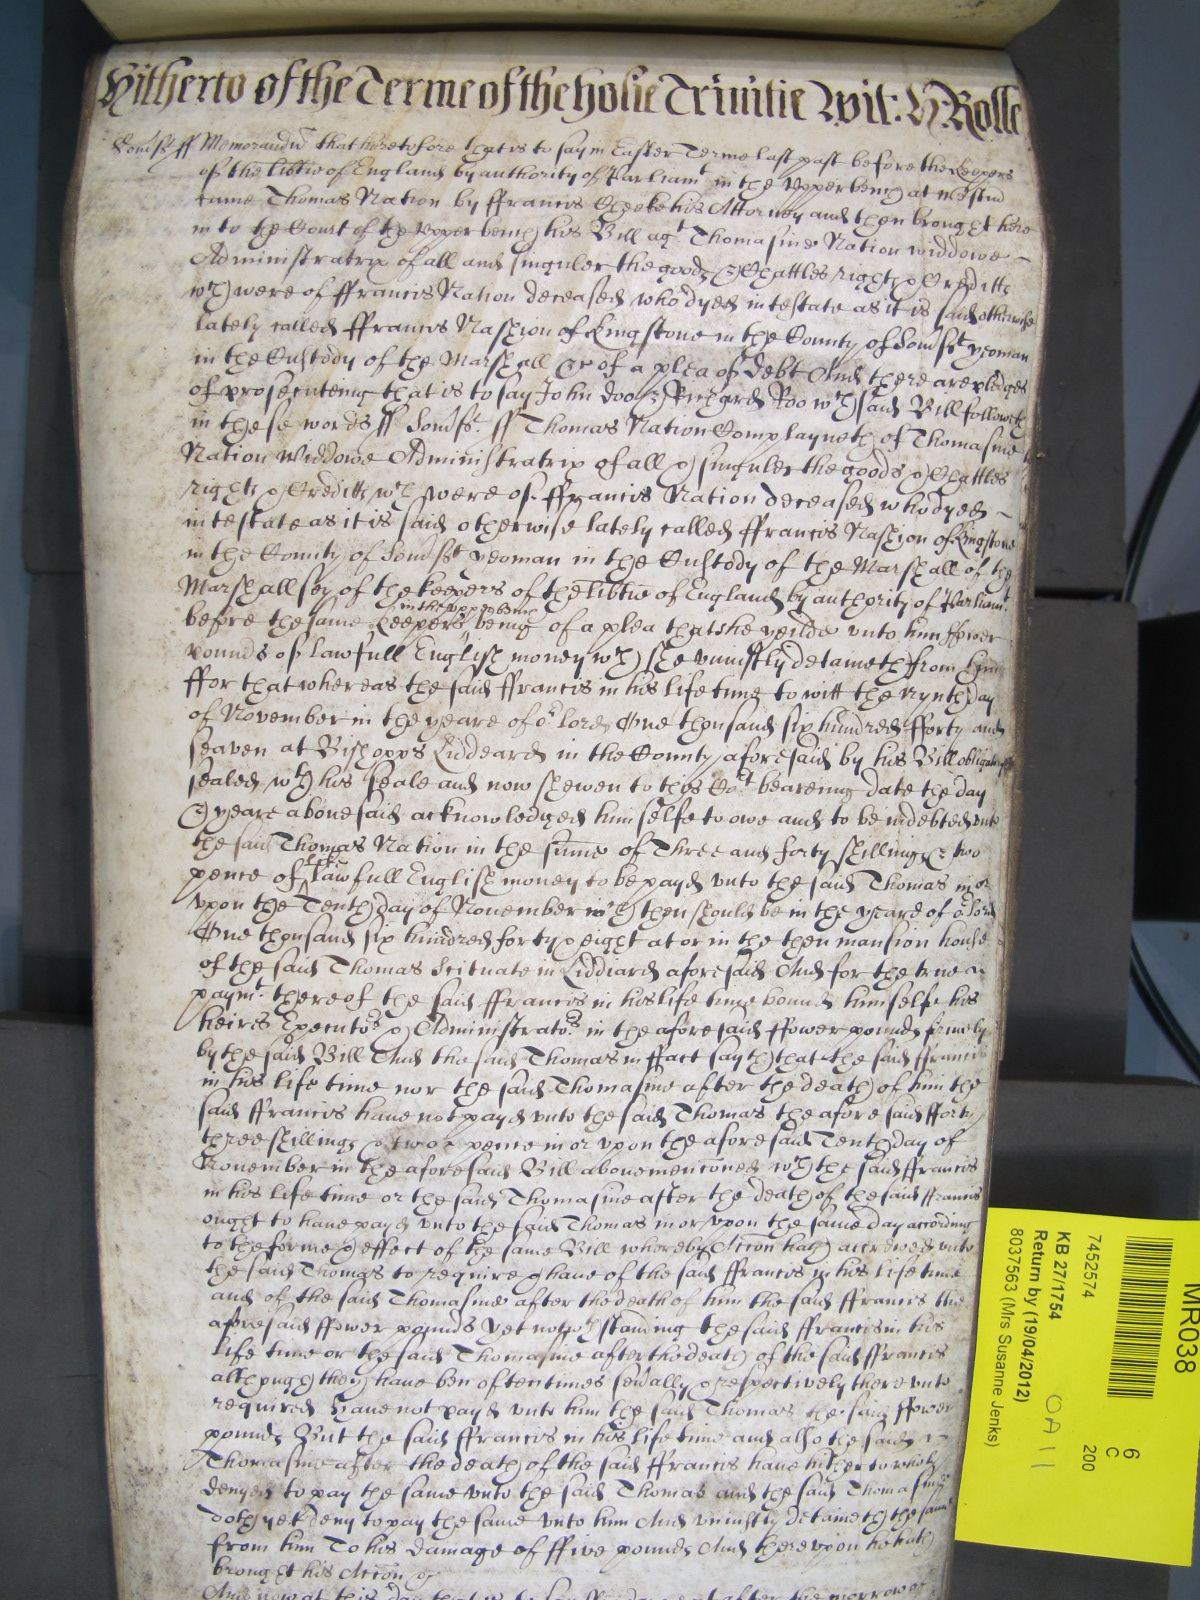 Hitherto of the Terme of the holie Trinitie Wit: H: Rolle
Somst ss Memorand that heretofore that is to say in Easter Terme last past before the Keepers
of the libtie of England by authority of Parliamt in the Upper bench at Westmr
came Thomas Nation by ffrancis Cheeke his Attorney and then brought here
into the Court of the Upper bench his Bill agt Thomasine Nation widdowe
Administratrix of all and singuler the goods & Chattles rights & Creditts
wch were of ffrancis Nation deceased who dyed intestate as it is said otherwise
lately called ffrancis Nashion of Kingstone in the County of Somst yeoman
in the Custody of the Marshall &c of a plea of debt And there are pledges
of prosecuteing that is to say John Doo & Richard Roo wch said Bill followeth
in these words ss Somst ss Thomas Nation Complayneth of Thomasine
Nation Widdowe Administratrix of all & singuler the goods & Chattles
rights & Creditts wch were of ffrancis Nation deceased who dyed
intestate as it is said otherwise lately called ffrancis Nashion of Kingstone
in the County of Somst yeoman in the Custody of the Marshall of the
Marshallsey of the keepers of the libtie of England by authority of Parliamt
in the upper bench
before the same Keepers being of a plea that she yeilde unto him ffower
pounds of lawfull English money wch she uniustly detaineth from him
ffor that whereas the said ffrancis in his life time to witt the nynth day
of November in the yeare of or lord One thousand six hundred fforty and
seaven at Bishopps Liddeard in the County aforesaid by his Bill obligatory
sealed wth his seale and now shewen to this Cort beareing date the day
& yeare abovesaid acknowledged himselfe to owe and to be indebted unto
the said Thomas Nation in the summe of Three and forty shillings & two
pence of lawfull English money to be payd unto the said Thomas in or
upon the Tenth day of November wch then should be in the yeare of or lord
One thousand six hundred forty & eight at or in the then mansion house
of the said Thomas scituate in Liddiard aforesaid And for the true
paymt thereof the said ffrancis in his life time bound himselfe his
heires Executors & Administrators in the aforesaid ffower pounds firmely
by the said Bill And the said Thomas in ffact sayth that the said ffrancis
in his life time nor the said Thomasine after the death of him the
said ffrancis have not payd unto the said Thomas the aforesaid fforty
three shillings & two pence in or upon the aforesaid Tenth day of
November in the aforesaid Bill abovementioned wch the said ffrancis
in his life time or the said Thomasine after the death of the said ffrancis
ought to have payd unto the said Thomas in or upon the same day according
to the forme & effect of the same Bill whereby Accon hath accrewed unto
the said Thomas to require & have of the said ffrancis in his life time
and of the said Thomasine after the death of him the said ffrancis the
aforesaid ffower pounds Yet notwthstanding the said ffrancis in his
life time or the said Thomasine after the death of the said ffrancis
although they have ben oftentimes sevally & respectively thereunto
required have not payd unto him the said Thomas the said ffower
pounds But the said ffrancis in his life time and also the said
Thomasine after the death of the said ffrancis have hitherto wholy
denyed to pay the same unto the said Thomas and the said Thomasine
doth yet deny to pay the same unto him And uniustly detaineth the same
from him To his damage of ffive pounds And thereupon he hath
brought his Accon &c
And now at this day that is to say
after the morrow of
MR038
6
C
200
7452574
KB 27/1754
Return by (19/04/2012)
8037563 (Mrs Susanne Jenks)
OA 11